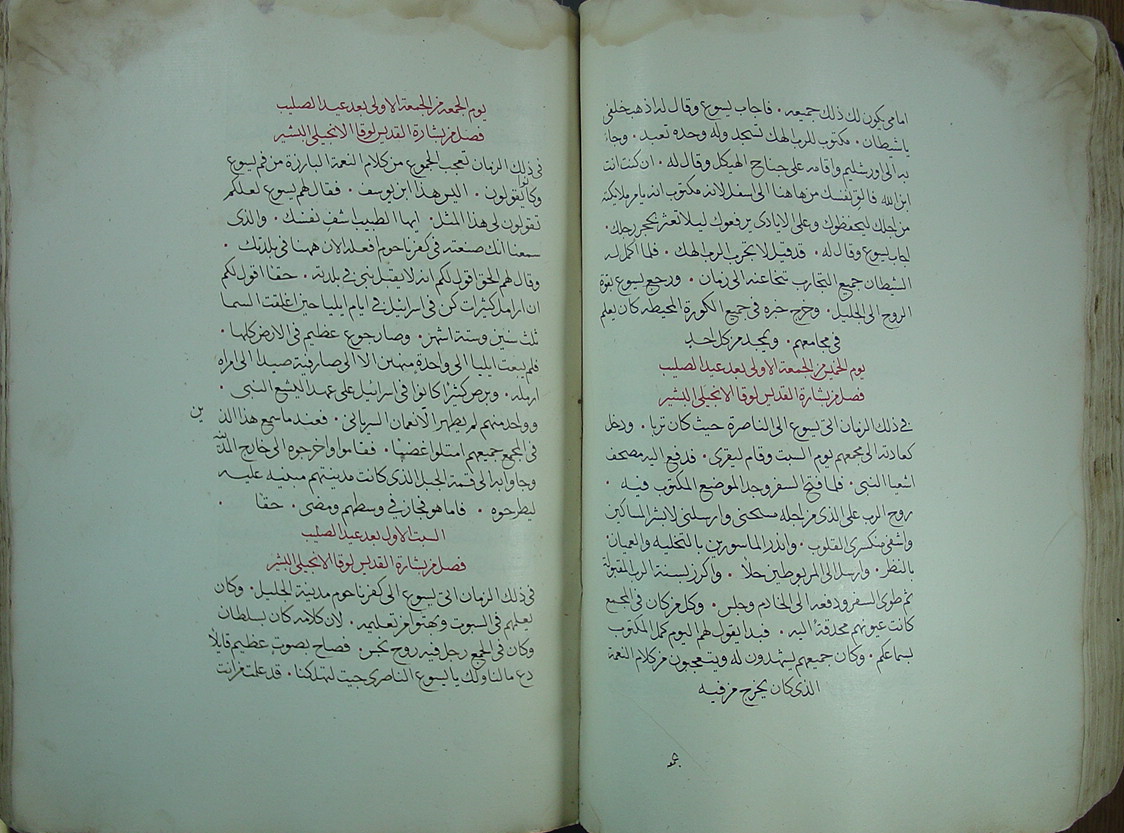 امامي يكون لك ذلك جميعه . فاجاب يسوع وقال له اذهب خلفي
يا شيطان . مكتوب للرب الهك تسجد وله وحده تعبد . وجاء
به الى اورشليم واقامه على جناح الهيكل وقال له . ان كنت انت
ابن الله فالق نفسك من هاهنا الى اسفل لانه مكتوب انه يامر ملايكته
من اجلك ليحفظوك وعلى الايادي يرفعوك ليلا تعثر بحجر رجلك .
اجاب يسوع وقال له . قد قيل لا تجرب الرب الهك . فلما اكمل له
الشيطان جميع التجارب تنحا عنه الى زمان . ورجع يسوع بقوة
الروح الى الجليل . وخرج خبره في جميع الكورة المحيطه كان يعلم
في مجامعهم . ويمجد من كل احد
يوم الخميس من الجمعة الاولى بعد عيد الصليب
فصل من بشارة القديس لوقا الانجيلي البشير
في ذلك الزمان اتى يسوع الى الناصرة حيث كان تربا . ودخل
كعادته الى مجمعهم يوم السبت وقام ليقرى . فدفع اليه مصحف
اشعيا النبي . فلما فتح السفر وجد الموضع المكتوب فيه .
روح الرب علي الذي من اجله مسحني وارسلني لابشر المساكين
واشفي منكسري القلوب . وانذر الماسورين بالتخليه والعميان
بالنظر . وارسل الى المربوطين حلا . واكرز بسنة الرب المقبولة
ثم طوى السفر ودفعه الى الخادم وجلس . وكل من كان في المجمع
كانت عيونهم محدقة اليه . فبدا يقول لهم اليوم كمل المكتوب
بسماعكم . وكان جميعهم يشهدون له ويتعجبون من كلام النعمة
الذي كان يخرج من فيه
يوم الجمعه من الجمعة الاولى بعد عيد الصليب
فصل من بشارة القديس لوقا الانجيلي البشير
في ذلك الزمان تعجب الجموع من كلام النعمة البارزة من فم يسوع
وكانوا يقولون . اليس هذا ابن يوسف . فقال لهم يسوع لعلكم
تقولون لي هذا المثل . ايها الطبيب اشف نفسك . والذي
سمعنا انك صنعته في كفرناحوم افعله الان ههنا في بلدتك .
وقال لهم الحق اقول لكم انه لا يقبل نبي في بلدته . حقا اقول لكم
ان ارامل كثيرات كن في اسرائيل في ايام ايليا حين اغلقت السما
ثلث سنين وستة اشهر . وصار جوع عظيم في الارض كلها .
فلم يبعث ايليا الى واحدة منهن الا الى صارفية صيدا الى امراه
ارمله . وبرص كثيرا كانوا في اسرائيل على عهد اليشع النبي .
وواحد منهم لم يطهر الا نعمان السرياني . فعند ما سمع هذا الذين
في المجمع جميعهم امتلوا غضبا . فقاموا واخرجوه الى خارج المدينة
وجاوا به الى قمة الجبل الذي كانت مدينتهم مبنيه عليه
ليطرحوه . فاما هو فجاز في وسطهم ومضى . حقا
السبت الاول بعد عيد الصليب
فصل من بشارة القديس لوقا الانجيلي البشير
في ذلك الزمان اتى يسوع الى كفرناحوم مدينة الجليل . وكان
يعلمهم في السبوت وبهتوا من تعليمه . لان كلامه كان بسلطان
وكان في المجمع رجل فيه روح نجس . فصاح بصوت عظيم قايلا
دع مالنا ولك يا يسوع الناصري جيت لتهلكنا . قد علمت من انت